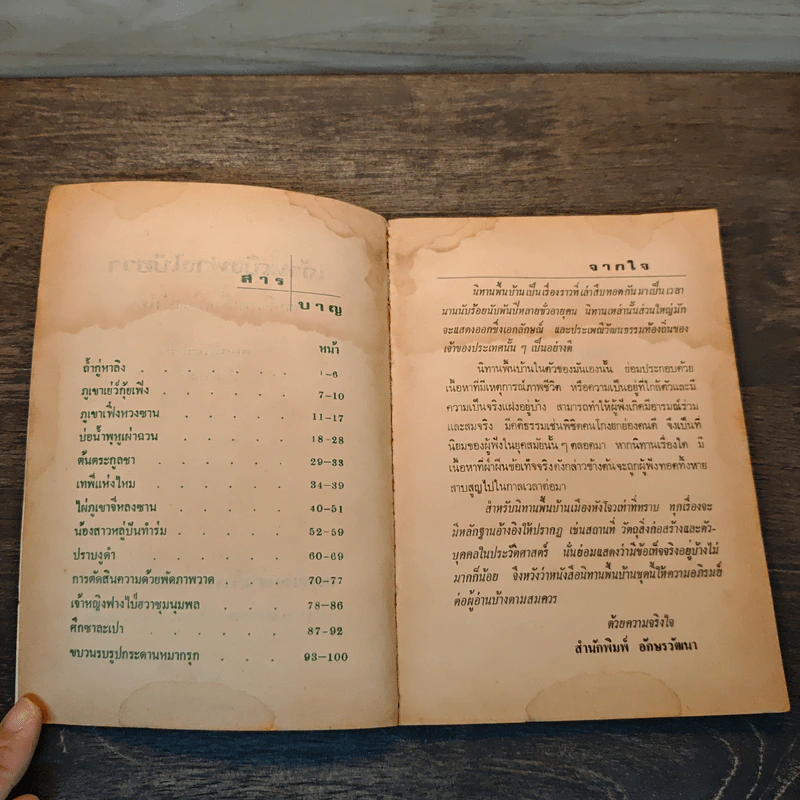 สาร
บาญ
หน้า
ถ้ำกู่หาลิง . . . . . . 1-6
ภูเขาเย่ว์กุ้ยเฟิง . . . . . 7-10
ภูเขาเฟิ่งหวงซาน . . . . . 11-17
บ่อน้ำพุหูเผ่าฉวน . . . . . 18-28
ต้นตระกูลชา . . . . . . 29-33
เทพีแห่งไหม . . . . . . 34-39
ไผ่ภูเขาจีหลงซาน . . . . . 40-51
น้องสาวหลู่บันทำร่ม . . . . . 52-59
ปราบงูดำ . . . . . . 60-69
การตัดสินความด้วยพัดภาพวาด . . . 70-77
เจ้าหญิงฟางไป่ฮวาชุมนุมพล . . . 78-86
ศึกซาละเปา . . . . . . 87-92
ขบวนรบรูปกระดานหมากรุก . . . 93-100
จากใจ
นิทานพื้นบ้านเป็นเรื่องราวที่เล่าสืบทอดกันมาเป็นเวลา
นานนับร้อยนับพันปีหลายชั่วอายุคน นิทานเหล่านั้นส่วนใหญ่มัก
จะแสดงออกซึ่งเอกลักษณ์ และประเพณีวัฒนธรรมท้องถิ่นของ
เจ้าของประเทศนั้น ๆ เป็นอย่างดี
นิทานพื้นบ้านในตัวของมันเองนั้น ย่อมประกอบด้วย
เนื้อหาที่มีเหตุการณ์ภาพชีวิต หรือความเป็นอยู่ที่ใกล้ตัวและมี
ความเป็นจริงแฝงอยู่บ้าง สามารถทำให้ผู้ฟังเกิดมีอารมณ์ร่วม
และสมจริง มีคติธรรมเช่นพิชิตคนโกงยกย่องคนดี จึงเป็นที่
นิยมของผู้ฟังในยุคสมัยนั้น ๆ ตลอดมา หากนิทานเรื่องใด มี
เนื้อหาที่ฝ่าฝืนข้อเท็จจริงดังกล่าวข้างต้นจะถูกผู้ฟังทอดทิ้งหาย
สาบสูญไปในกาลเวลาต่อมา
สำหรับนิทานพื้นบ้านเมืองหังโจวเท่าที่ทราบ ทุกเรื่องจะ
มีหลักฐานอ้างอิงให้ปรากฏ เช่นสถานที่ วัตถุสิ่งก่อสร้างและตัว-
บุคคลในประวัติศาสตร์ นั่นย่อมแสดงว่ามีข้อเท็จจริงอยู่บ้างไม่
มากก็น้อย จึงหวังว่าหนังสือนิทานพื้นบ้านชุดนี้ให้ความอภิรมย์
ต่อผู้อ่านบ้างตามสมควร
ด้วยความจริงใจ
สำนักพิมพ์ อักษรวัฒนา